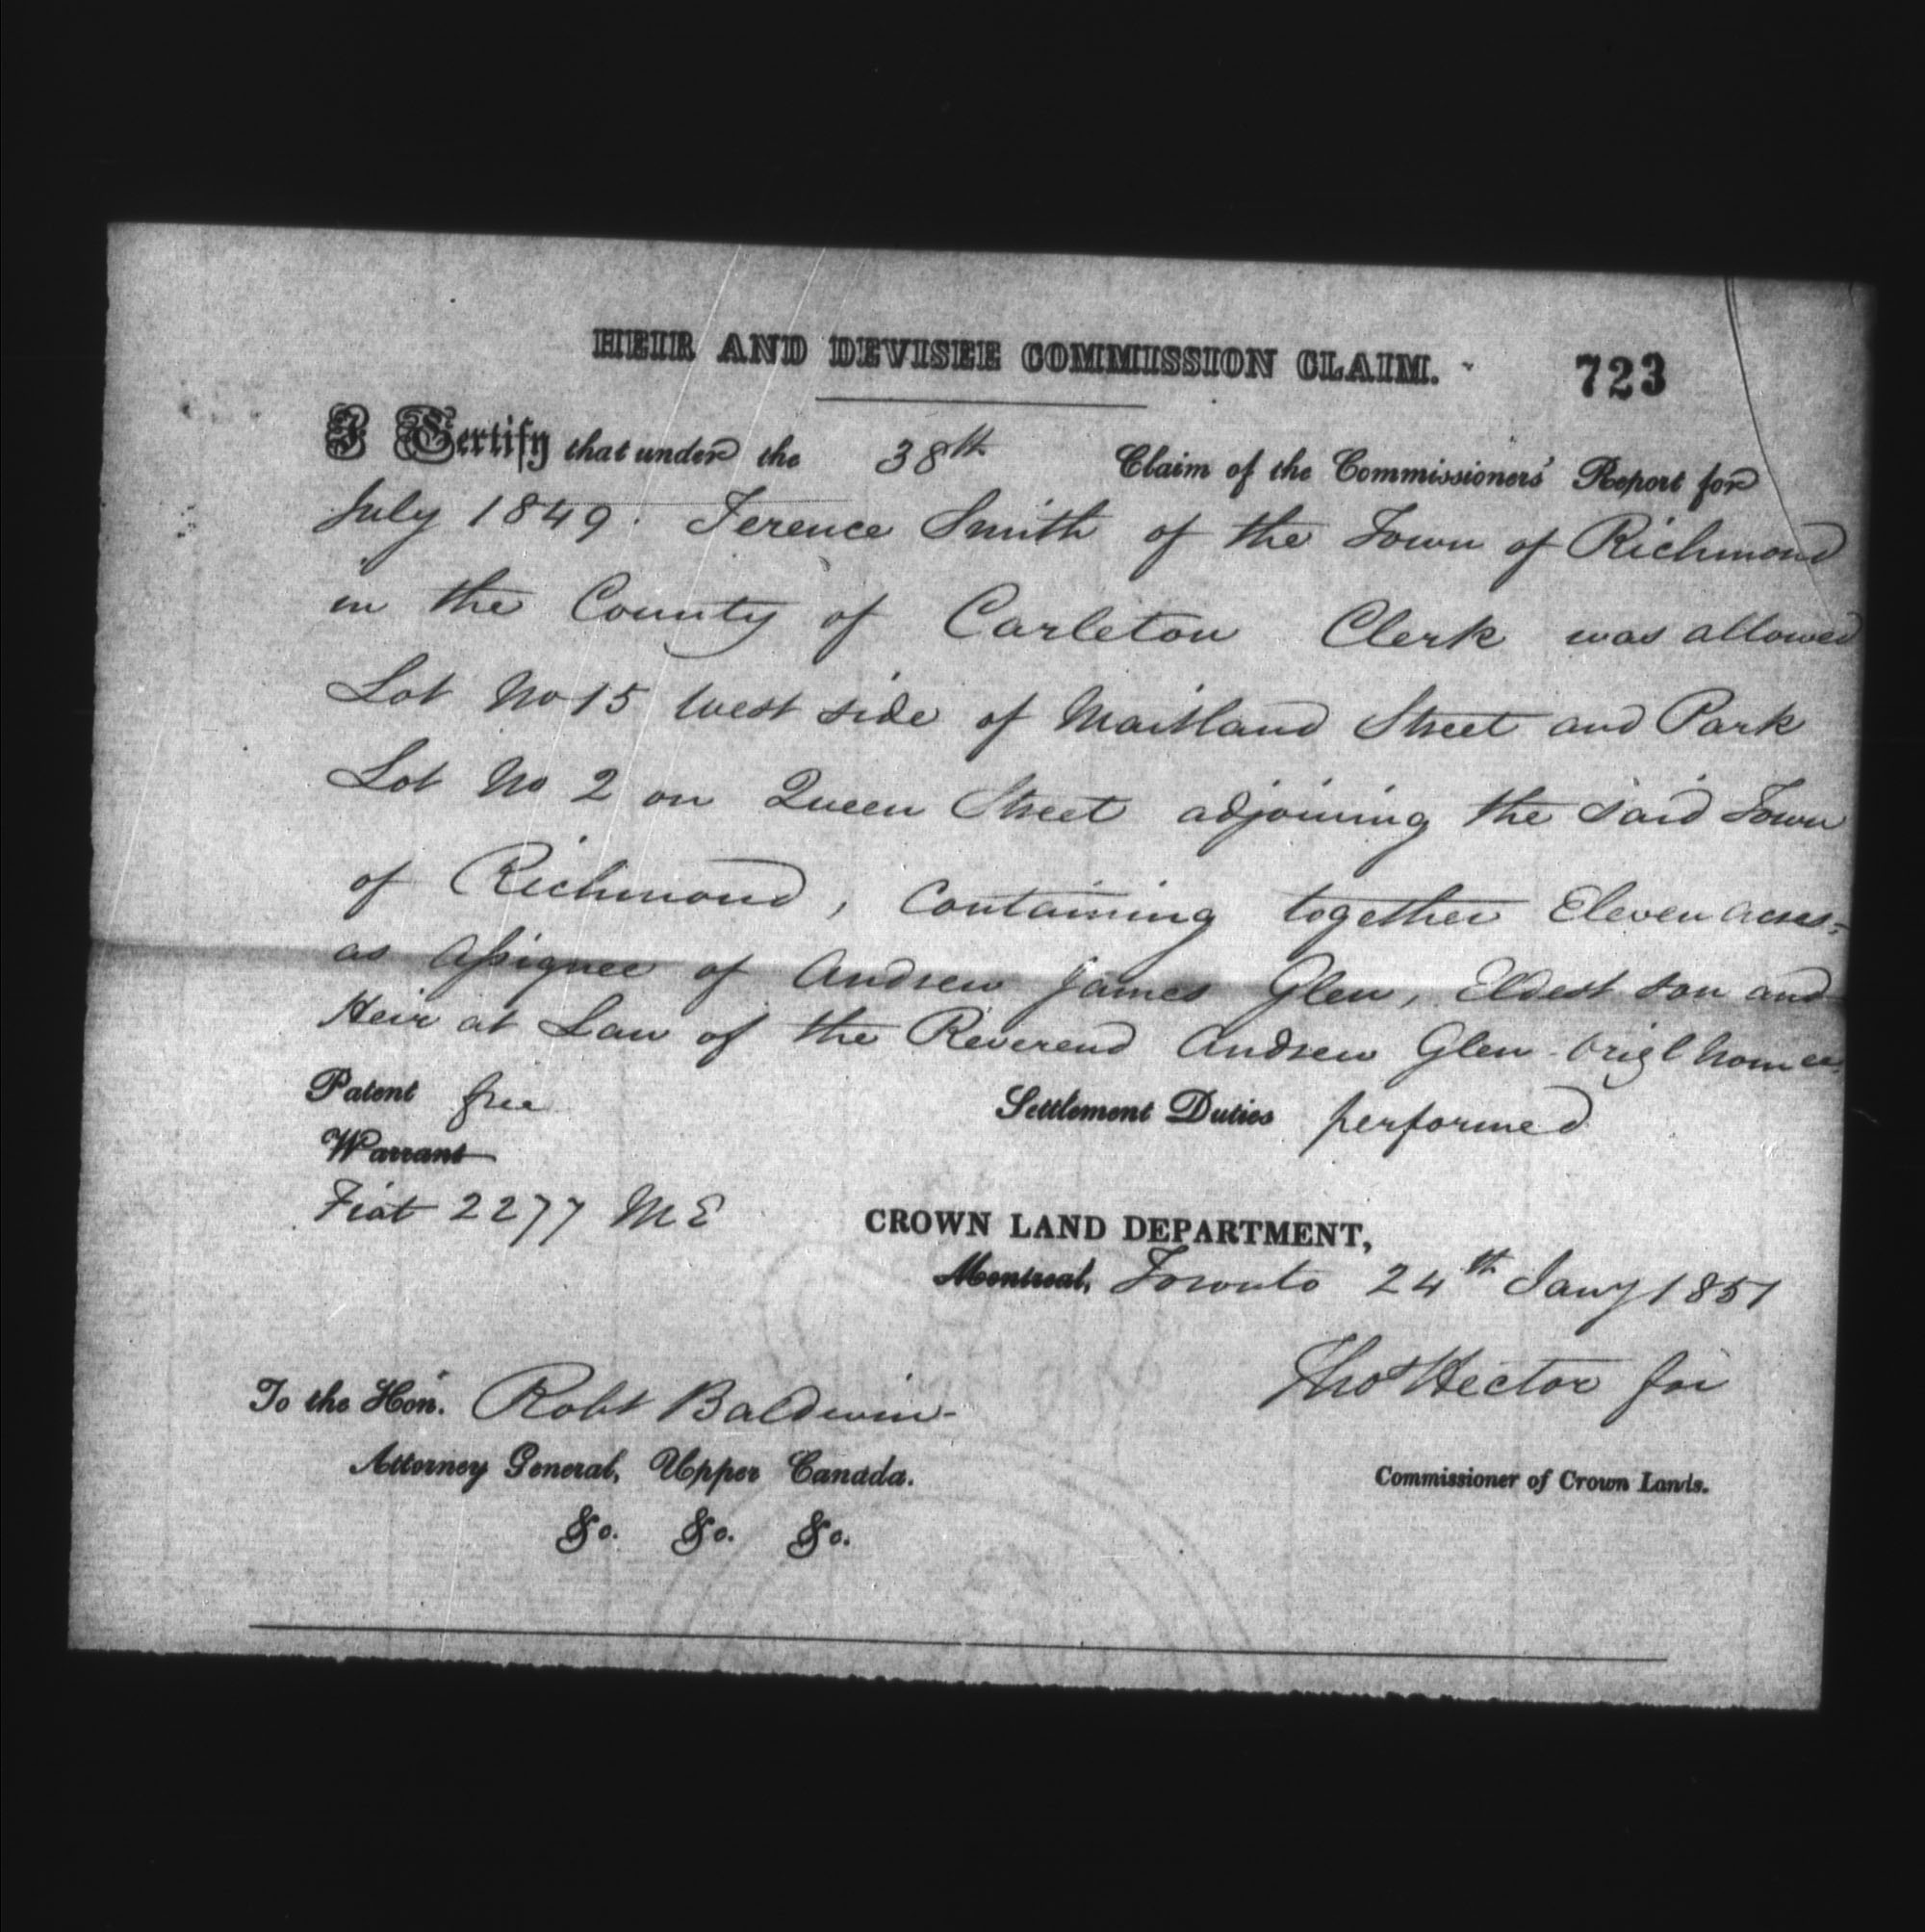 HEIR AND DEVISEE COMMISSION CLAIM. 723
I Certify that under the 38th Claim of the Commissioners' Report for
July 1849. Terence Smith of the Town of Richmond
in the County of Carleton Clerk was allowed
Lot No 15 West side of Maitland Street and Park
Lot No 2 on Queen Street adjoining the said Town
of Richmond, Containing together Eleven acres-
as Assignee of Andrew James Glen, Eldest son and
Heir at Law of the Reverend Andrew Glen origl nominee.
Patent free Settlement Duties performed
Warrant
Fiat 2277 M E
CROWN LAND DEPARTMENT,
Montreal, Toronto 24th Jany 1851
Thos Hector for
To the Hon. Robt Baldwin-
Attorney General, Upper Canada. Commissioner of Crown Lands.
&c. &c. &c.